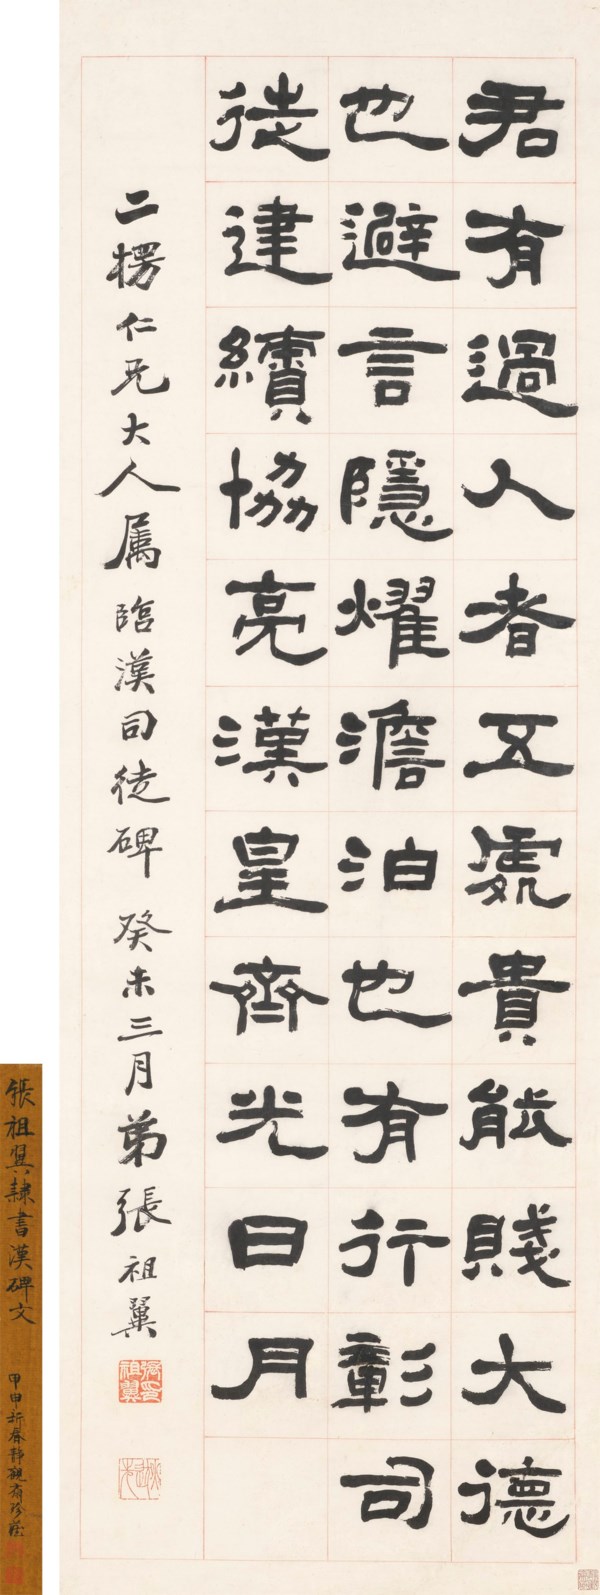 君有過人者五處貴能賤大德
也避言隱耀澹泊也有行彰司
徒建續協亮漢皇齊光日月
二楞仁兄大人属臨漢司徒碑 癸未三月弟張祖翼
張祖翼印
張祖翼隸書漢碑文
甲申新春靜觀齋珍藏